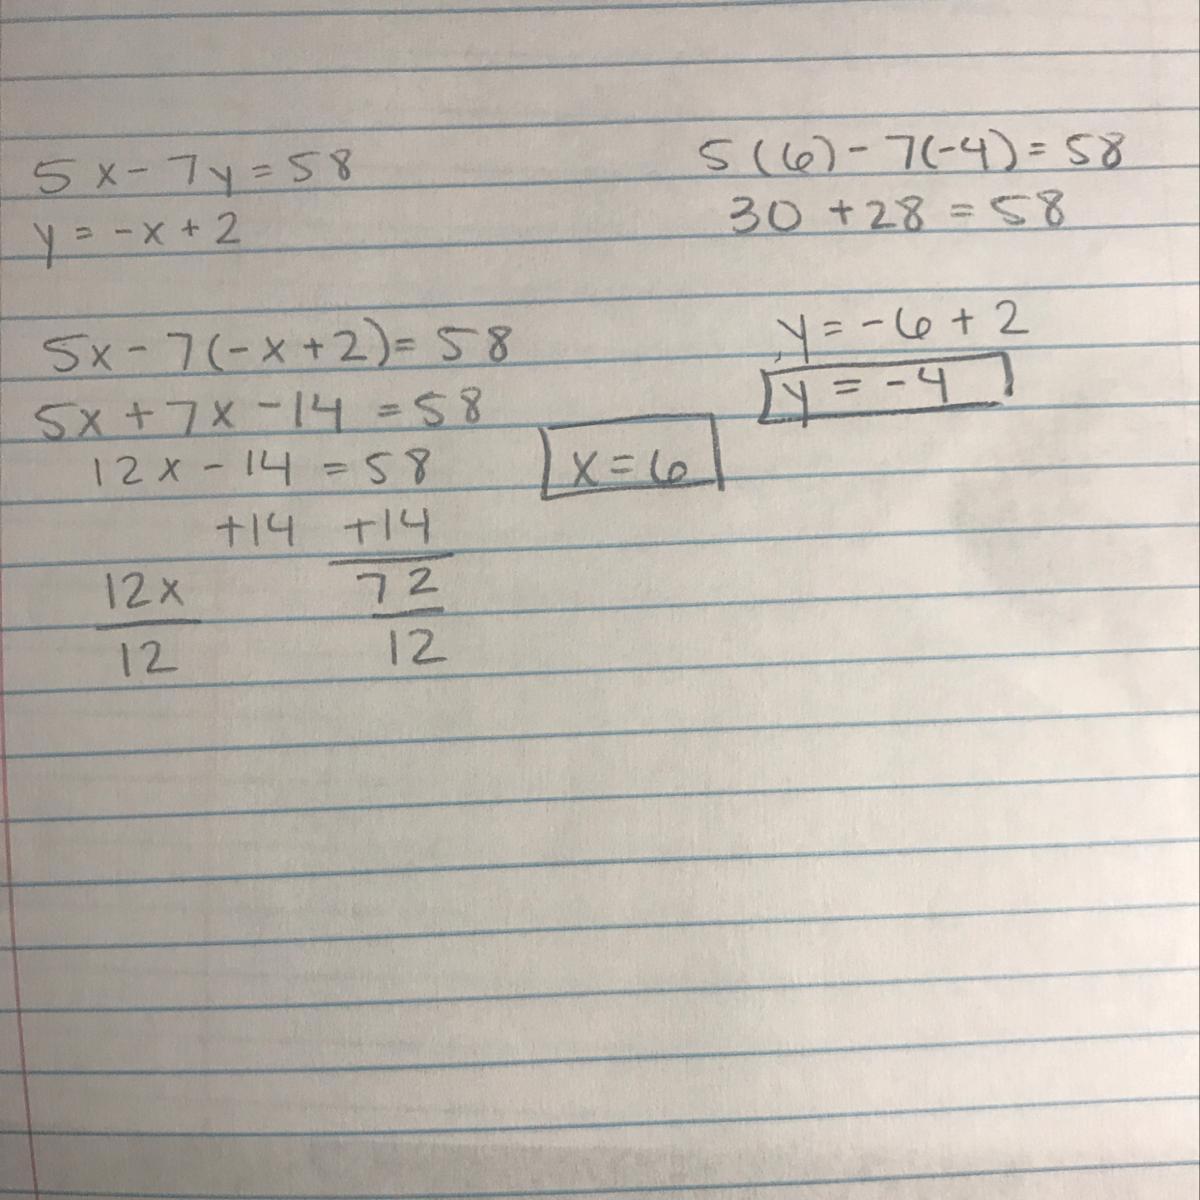 5x - 7y = 58
y = -x + 2
5x - 7(-x + 2) = 58
5x + 7x - 14 = 58
12x - 14 = 58
+14 +14
12x 72
12 12
x = 6
y = -6 + 2
y = -4
5(6) - 7(-4) = 58
30 + 28 = 58